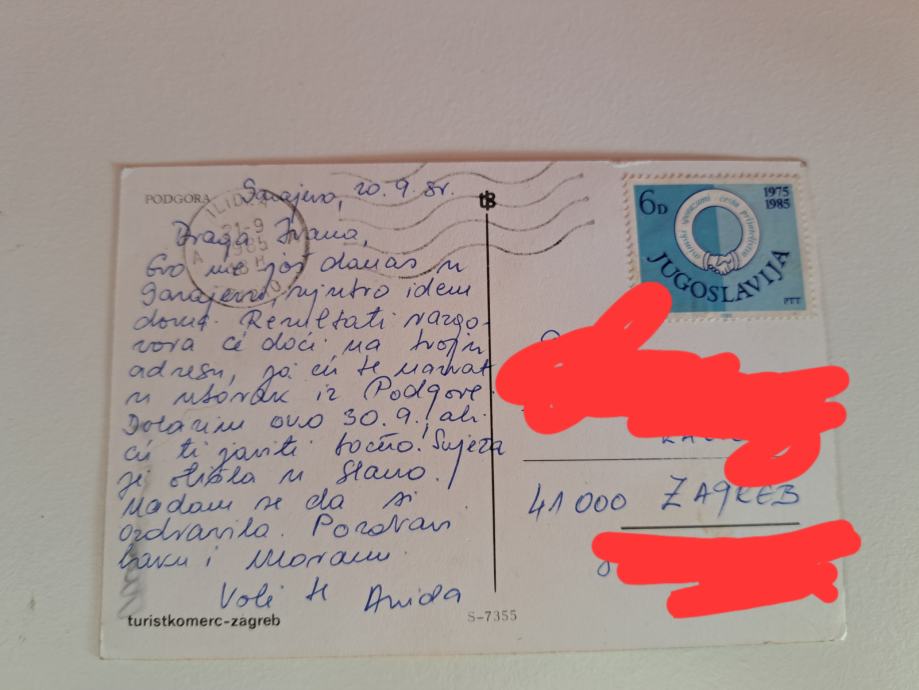 PODGORA
Sarajevo, 20.9.85.
Draga Ivana,
Evo me još danas u
Sarajevu, ujutro idem
doma. Rezultati razgo-
vora će doći na tvoju
adresu, ja ću te nazvat
u utorak iz Podgore.
Dolazim ovo 30.9., ali
ću ti javiti točno! Svjeza
je otišla u Slano.
Nadam se da si
ozdravila. Pozdravi
baku i Moranu.
Voli te Anida
turistkomerc-zagreb
S-7355
tB
ILIDŽA
21-9
1985
6D
1975
1985
JUGOSLAVIJA
PTT
41000 ZAGREB